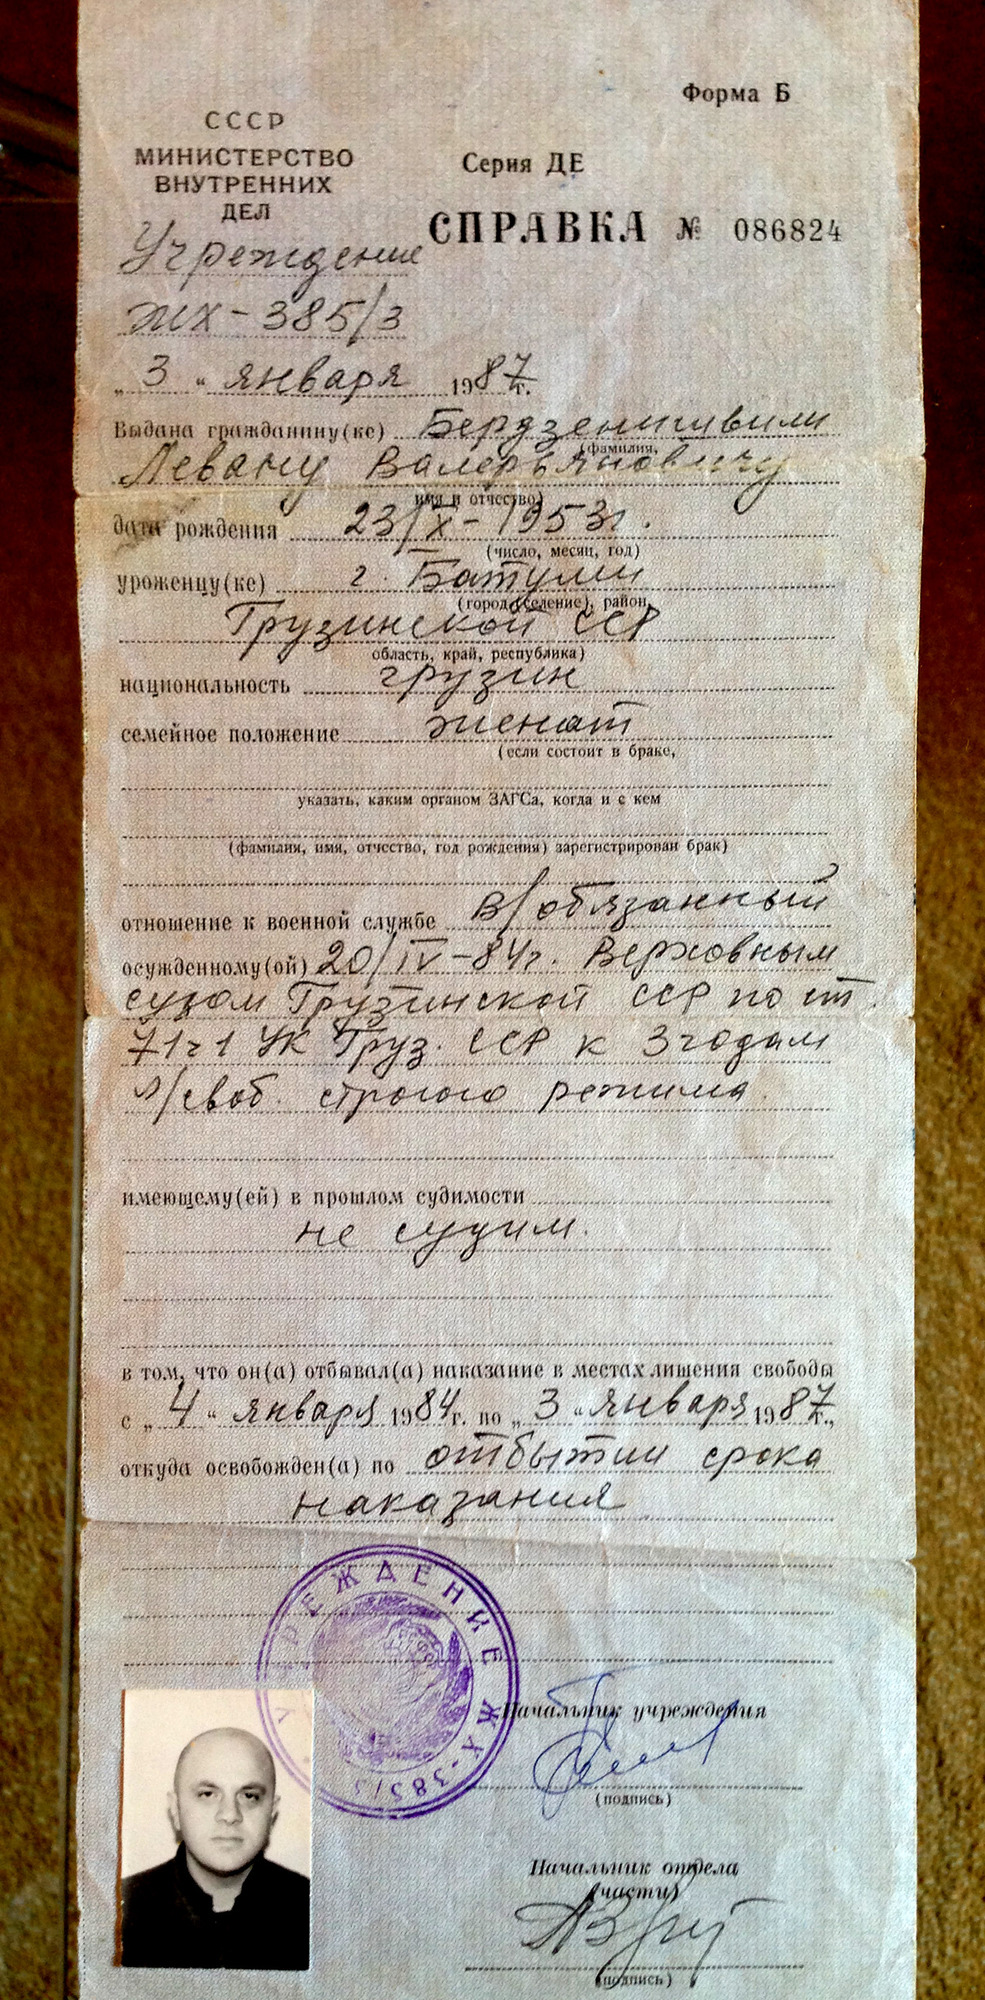 Форма Б
СССР
МИНИСТЕРСТВО
ВНУТРЕННИХ
ДЕЛ
Серия ДЕ
СПРАВКА № 086824
Учреждение
ЖХ-385/3
„3“ января 1987г.
Выдана гражданину(ке) Бердзенишвили
(фамилия,
Левану Валерьяновичу
имя и отчество)
дата рождения 23/X-1953г.
(число, месяц, год)
уроженцу(ке) г. Батуми
(город (селение), район,
Грузинской ССР
область, край, республика)
национальность грузин
семейное положение женат
(если состоит в браке,
указать, каким органом ЗАГСа, когда и с кем
(фамилия, имя, отчество, год рождения) зарегистрирован брак)
отношение к военной службе в/обязанный
осужденному(ой) 20/IV-84г. Верховным
судом Грузинской ССР по ст.
71ч1 УК Груз. ССР к 3 годам
л/своб. строгого режима.
имеющему(ей) в прошлом судимости
не судим.
в том, что он(а) отбывал(а) наказание в местах лишения свободы
с „4“ января 1984г. по „3“ января 1987г.,
откуда освобожден(а) по отбытии срока
наказания
УЧРЕЖДЕНИЕ ЖХ-385/3
Начальник учреждения
(подпись)
Начальник отдела
(части)
(подпись)